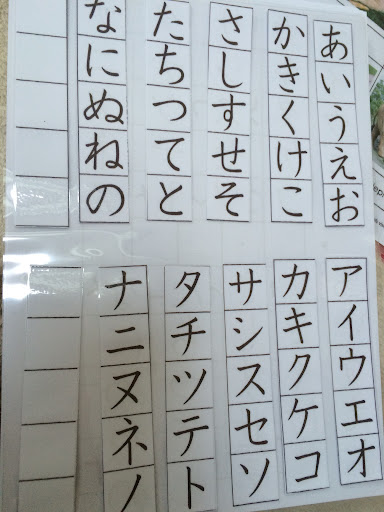 あいうえお
かきくけこ
さしすせそ
たちつてと
なにぬねの
アイウエオ
カキクケコ
サシスセソ
タチツテト
ナニヌネノ